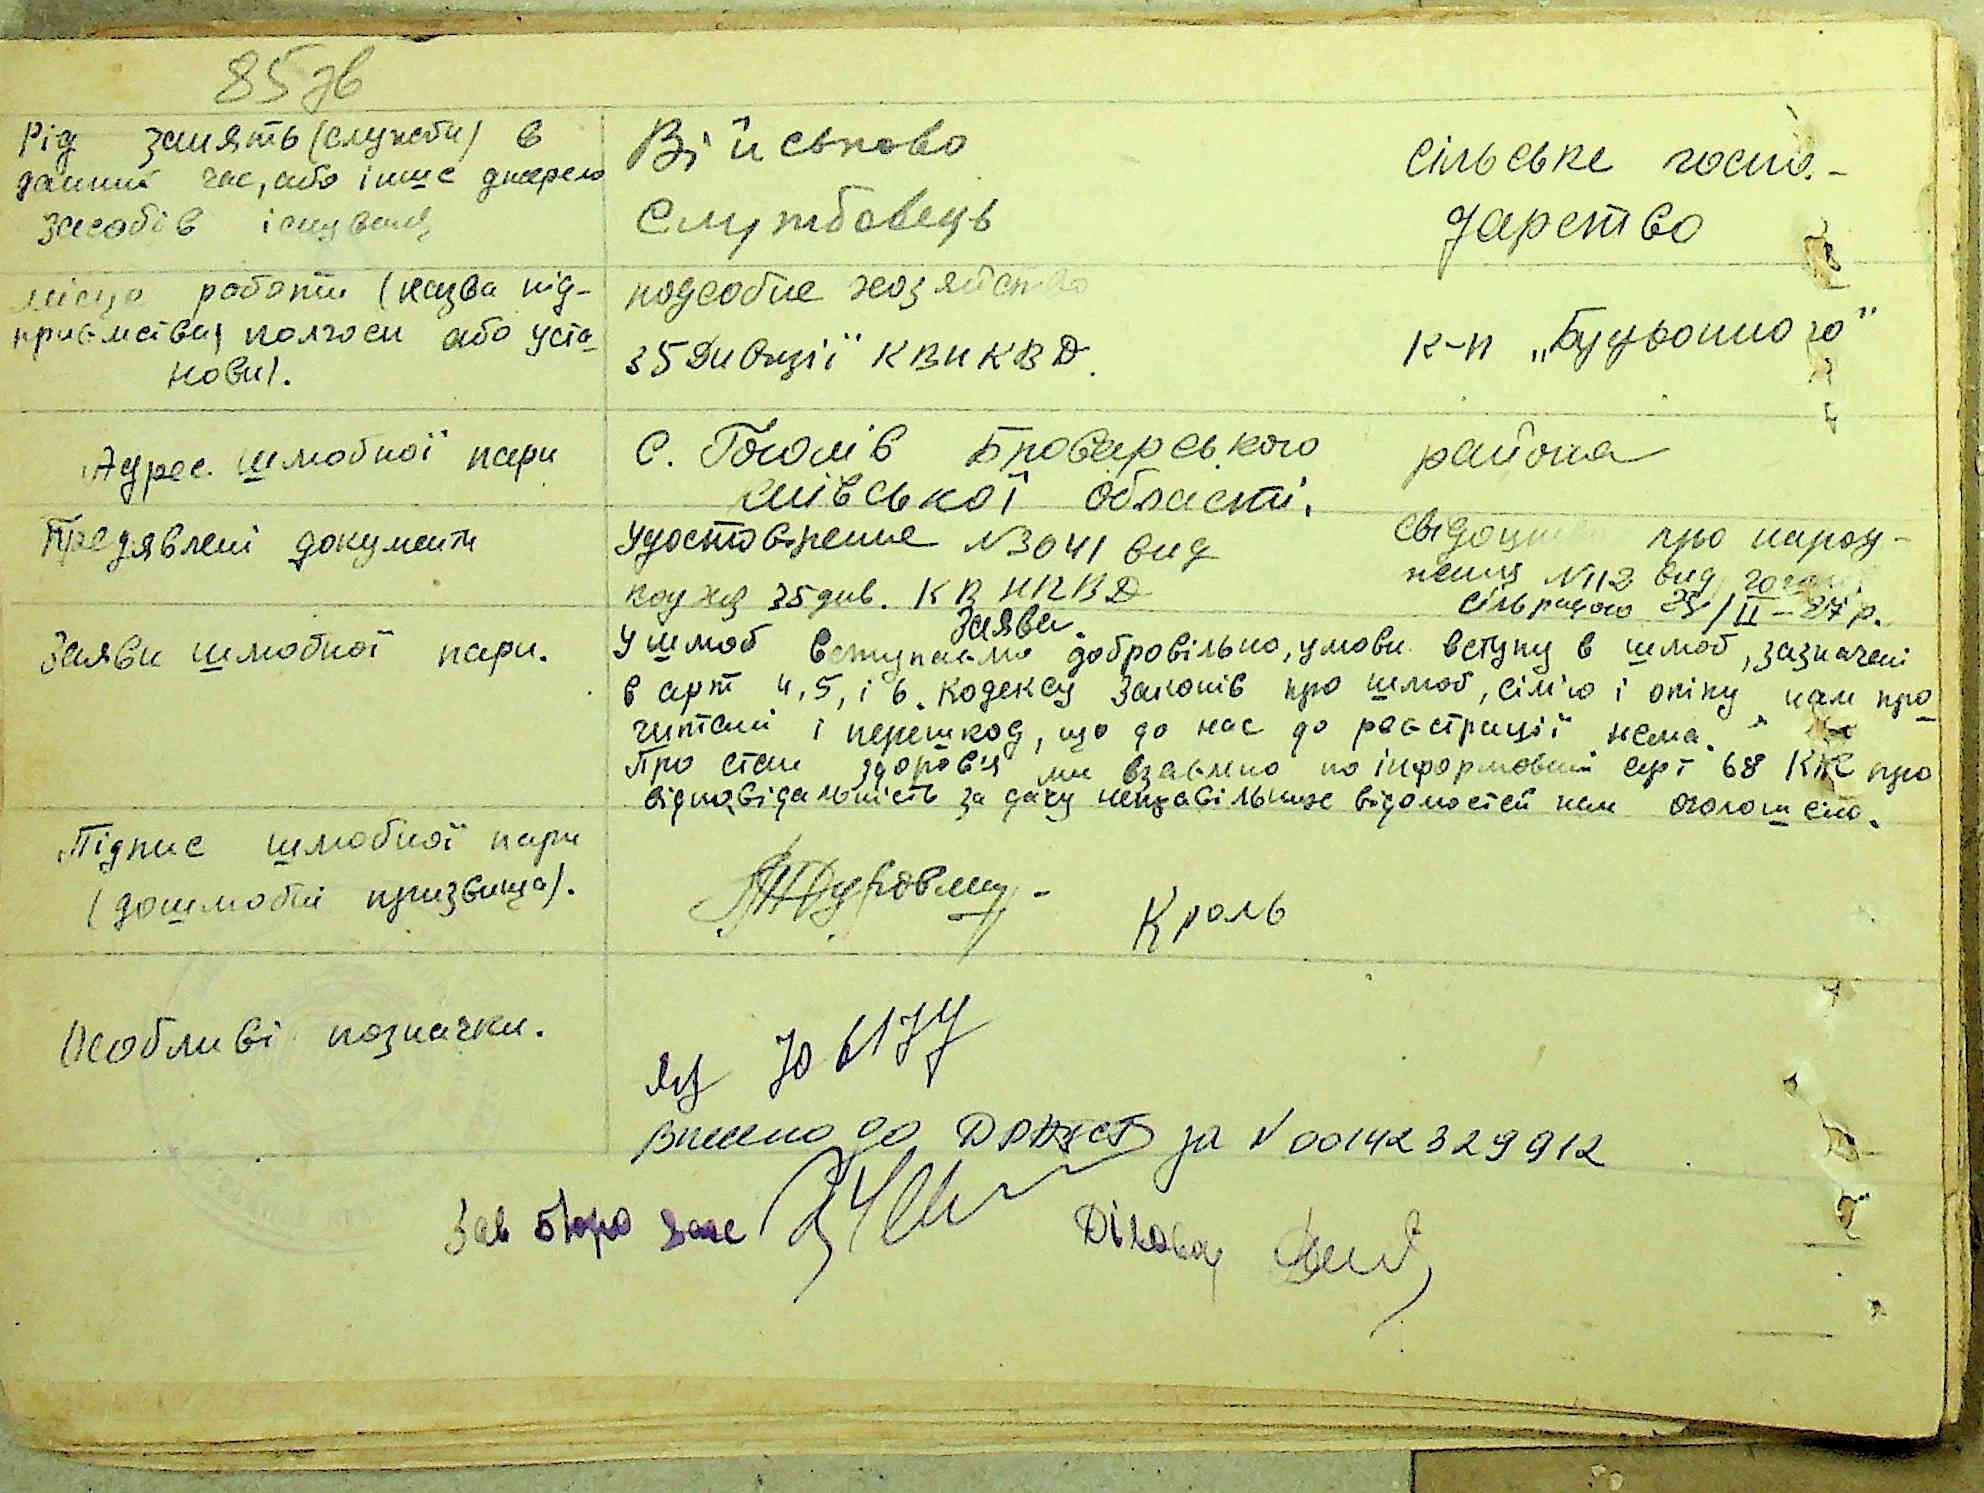 85 зв
Рід занять (служби) в
данний час, або інше джерело
засобів існуваня
Військово
службовець
сільське госпо-
дарство
місце роботи (назва під-
приємства, колгоси або уста-
нови).
подсобне хозяйство
35 Дивізії КВНКВД.
к-п „Будьонного"
Адрес шлюбної пари
с. Гоголів Броварського района
Київської області.
Предявлені документи
Удостоверение №3041 вид
35 див. КВ НКВД
свідоцтво про народ-
ження №112 вид
сільрадою /II-27 р.
Заяви шлюбної пари.
Заява.
У шлюб вступаємо добровільно, умови вступу в шлюб, зазначені
в арт 4, 5, і 6. Кодексу Законів про шлюб, сім'ю і опіку нам про
читані і перешкод, що до нас до реєстрації нема.
Про стан здоров'я ми взаємно по інформовані арт 68 КК про
відповідальність за дачу неправільних відомостей нам оголошено.
Підпис шлюбної пари
(дошлюбні призвища).
Кроль
Особливі позначки.
внесено до за N 00142329912
Зав бюро загс
Діловод